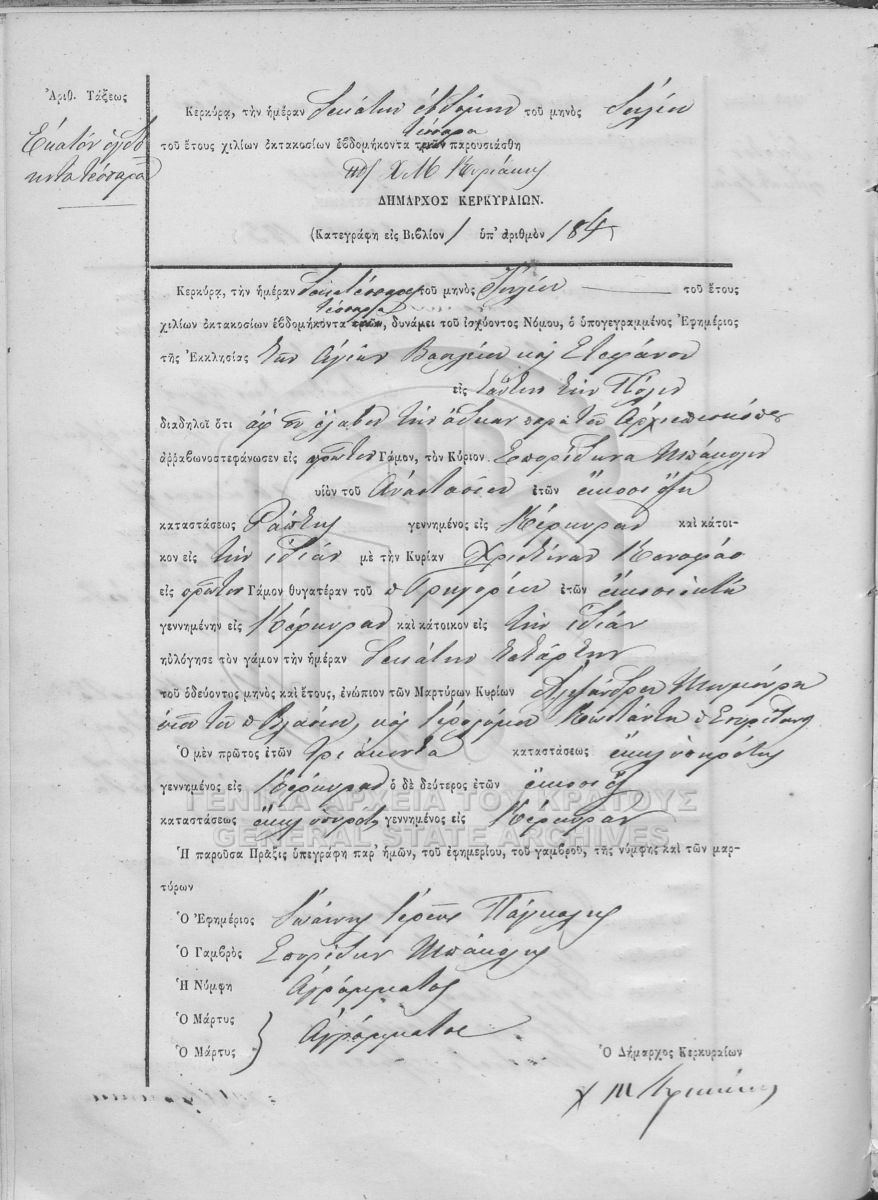 Ἀριθ. Τάξεως
Ἑκατόν ὀγδο
ηντατέσσαρα
Κερκύρᾳ, τὴν ἡμέραν Δεκάτην ἑβδόμην τοῦ μηνὸς Ἰουλίου
τέσσαρα
τοῦ ἔτους χιλίων ὀκτακοσίων ἑβδομήκοντα τριῶν παρουσιάσθη
Χ Μ Κυριάκης
ΔΗΜΑΡΧΟΣ ΚΕΡΚΥΡΑΙΩΝ.
(Κατεγράφη εἰς Βιβλίον 1 ὑπ' ἀριθμὸν 184)
Κερκύρᾳ, τὴν ἡμέραν Δεκατέσσαρες τοῦ μηνὸς Ἰουλίου τοῦ ἔτους
τέσσαρα
χιλίων ὀκτακοσίων ἑβδομήκοντα τριῶν, δυνάμει τοῦ ἰσχύοντος Νόμου, ὁ ὑπογεγραμμένος Ἐφημέριος
τῆς Ἐκκλησίας τῶν Ἁγίων Βασιλείου καὶ Στεφάνου
εἰς ταύτην τὴν Πόλιν
διαδηλοῖ ὅτι ἀφ οὗ ἔλαβον τὴν ἄδειαν παρὰ τοῦ Ἀρχιεπισκόπου
ἀρραβωνοστεφάνωσεν εἰς πρῶτον Γάμον, τὸν Κύριον Σπυρίδωνα Μπάκολην
υἱὸν τοῦ Ἀναστασίου ἐτῶν εἴκοσι ἕξη
καταστάσεως Ράπτης γεννημένος εἰς Κέρκυραν καὶ κάτοι-
κον εἰς τὴν ἰδίαν μὲ τὴν Κυρίαν Χριστίναν
εἰς πρῶτον Γάμον θυγατέραν τοῦ Γρηγορίου ἐτῶν εἴκοσι ἑπτά
γεννημένην εἰς Κέρκυραν καὶ κάτοικον εἰς τὴν ἰδίαν
ηὐλόγησε τὸν γάμον τὴν ἡμέραν δεκάτην τετάρτην
τοῦ ὁδεύοντος μηνὸς καὶ ἔτους, ἐνώπιον τῶν Μαρτύρων Κυρίων Ἀλεξάνδρου
τοῦ Βλασίου, καὶ Γερολύμου Κωστάντη Σπυρίδωνος
Ὁ μὲν πρῶτος ἐτῶν τριάκοντα καταστάσεως
γεννημένος εἰς Κέρκυραν ὁ δὲ δεύτερος ἐτῶν εἴκοσι ἕξ
καταστάσεως γεννημένος εἰς Κέρκυραν
ΓΕΝΙΚΑ ΑΡΧΕΙΑ ΤΟΥ ΚΡΑΤΟΥΣ
GENERAL STATE ARCHIVES
Ἡ παροῦσα Πρᾶξις ὑπεγράφη παρ' ἡμῶν, τοῦ ἐφημερίου, τοῦ γαμβροῦ, τῆς νύμφης καὶ τῶν μαρ-
τύρων
Ὁ Ἐφημέριος Ἰωάννης ἱερεὺς Πάγκαλης
Ὁ Γαμβρὸς Σπυρίδων Μπάκολης
Ἡ Νύμφη Ἀγράμματος
Ὁ Μάρτυς
Ἀγράμματοι
Ὁ Μάρτυς
Ὁ Δήμαρχος Κερκυραίων
Χ Μ Κυριάκης